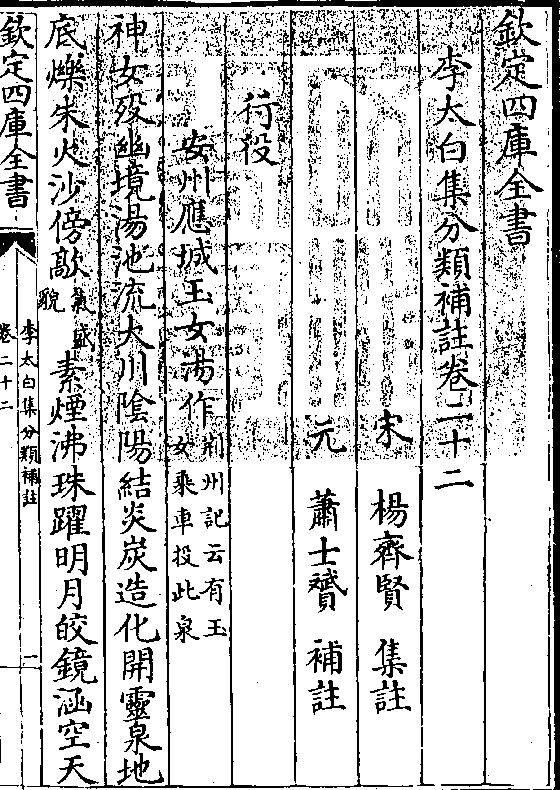 欽定四庫全書
李太白集分類補註卷二十二
宋 楊齊賢 集註
元 蕭士贇 補註
行役
安州應城玉女湯作荆州記云有玉女乘車投此泉
神女殁幽境湯池流大川陰陽結炎炭造化開靈泉地
底爍朱火沙傍歊氣盛貌素煙沸珠躍明月皎鏡涵空天
欽定四庫全書
李太白集分類補註
卷二十二
一